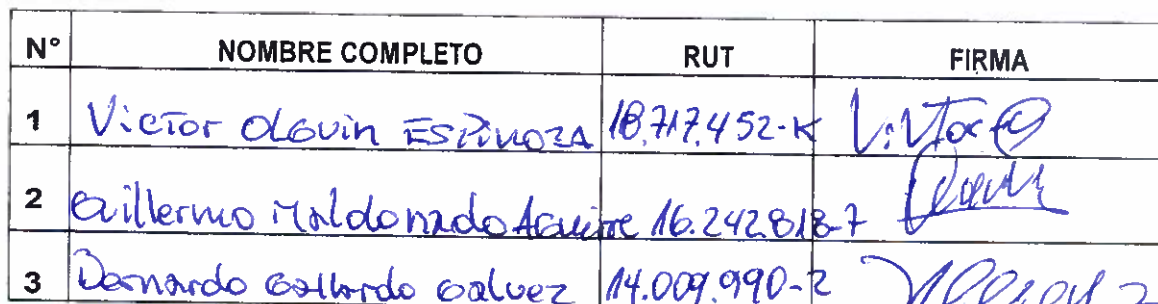 N° NOMBRE COMPLETO RUT FIRMA
1 Victor Olavin ESPINOZA 18.717.452-K
2 Guillermo Maldonado Aguirre 16.242.818-7
3 Bernardo Gallardo Galvez 14.009.990-2